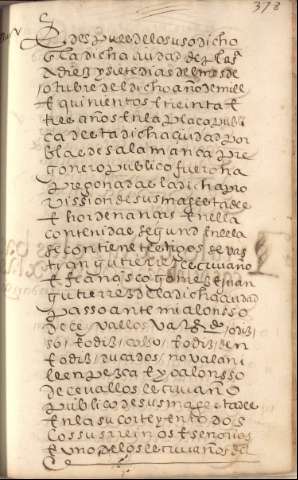 378
E despues de lo suso dicho
En la dicha ciudad
A diez y siete dias del mes de
otubre del dicho año de mill
E quinientos E treinta E
tres años En la plaça publi
ca de esta dicha ciudad por
blas de salamanca pre
gonero publico fue
Pregonada la dicha pro
vission de su magestad
E hordenanças E en ella
contenidas segund En ella
se contiene testigos
gutierrez escriuano
E francisco gomez E juan
gutierrez de la dicha ciudad
Passo ante mi alonso
de ceuallos va
E o diz
o diz ducados no vala ni
le en pezca E yo alonsso
de ceuallos escriuano
Publico de su magestad
En la su corte y En todos
los sus reinos E señorios
E uno de los escriuanos del